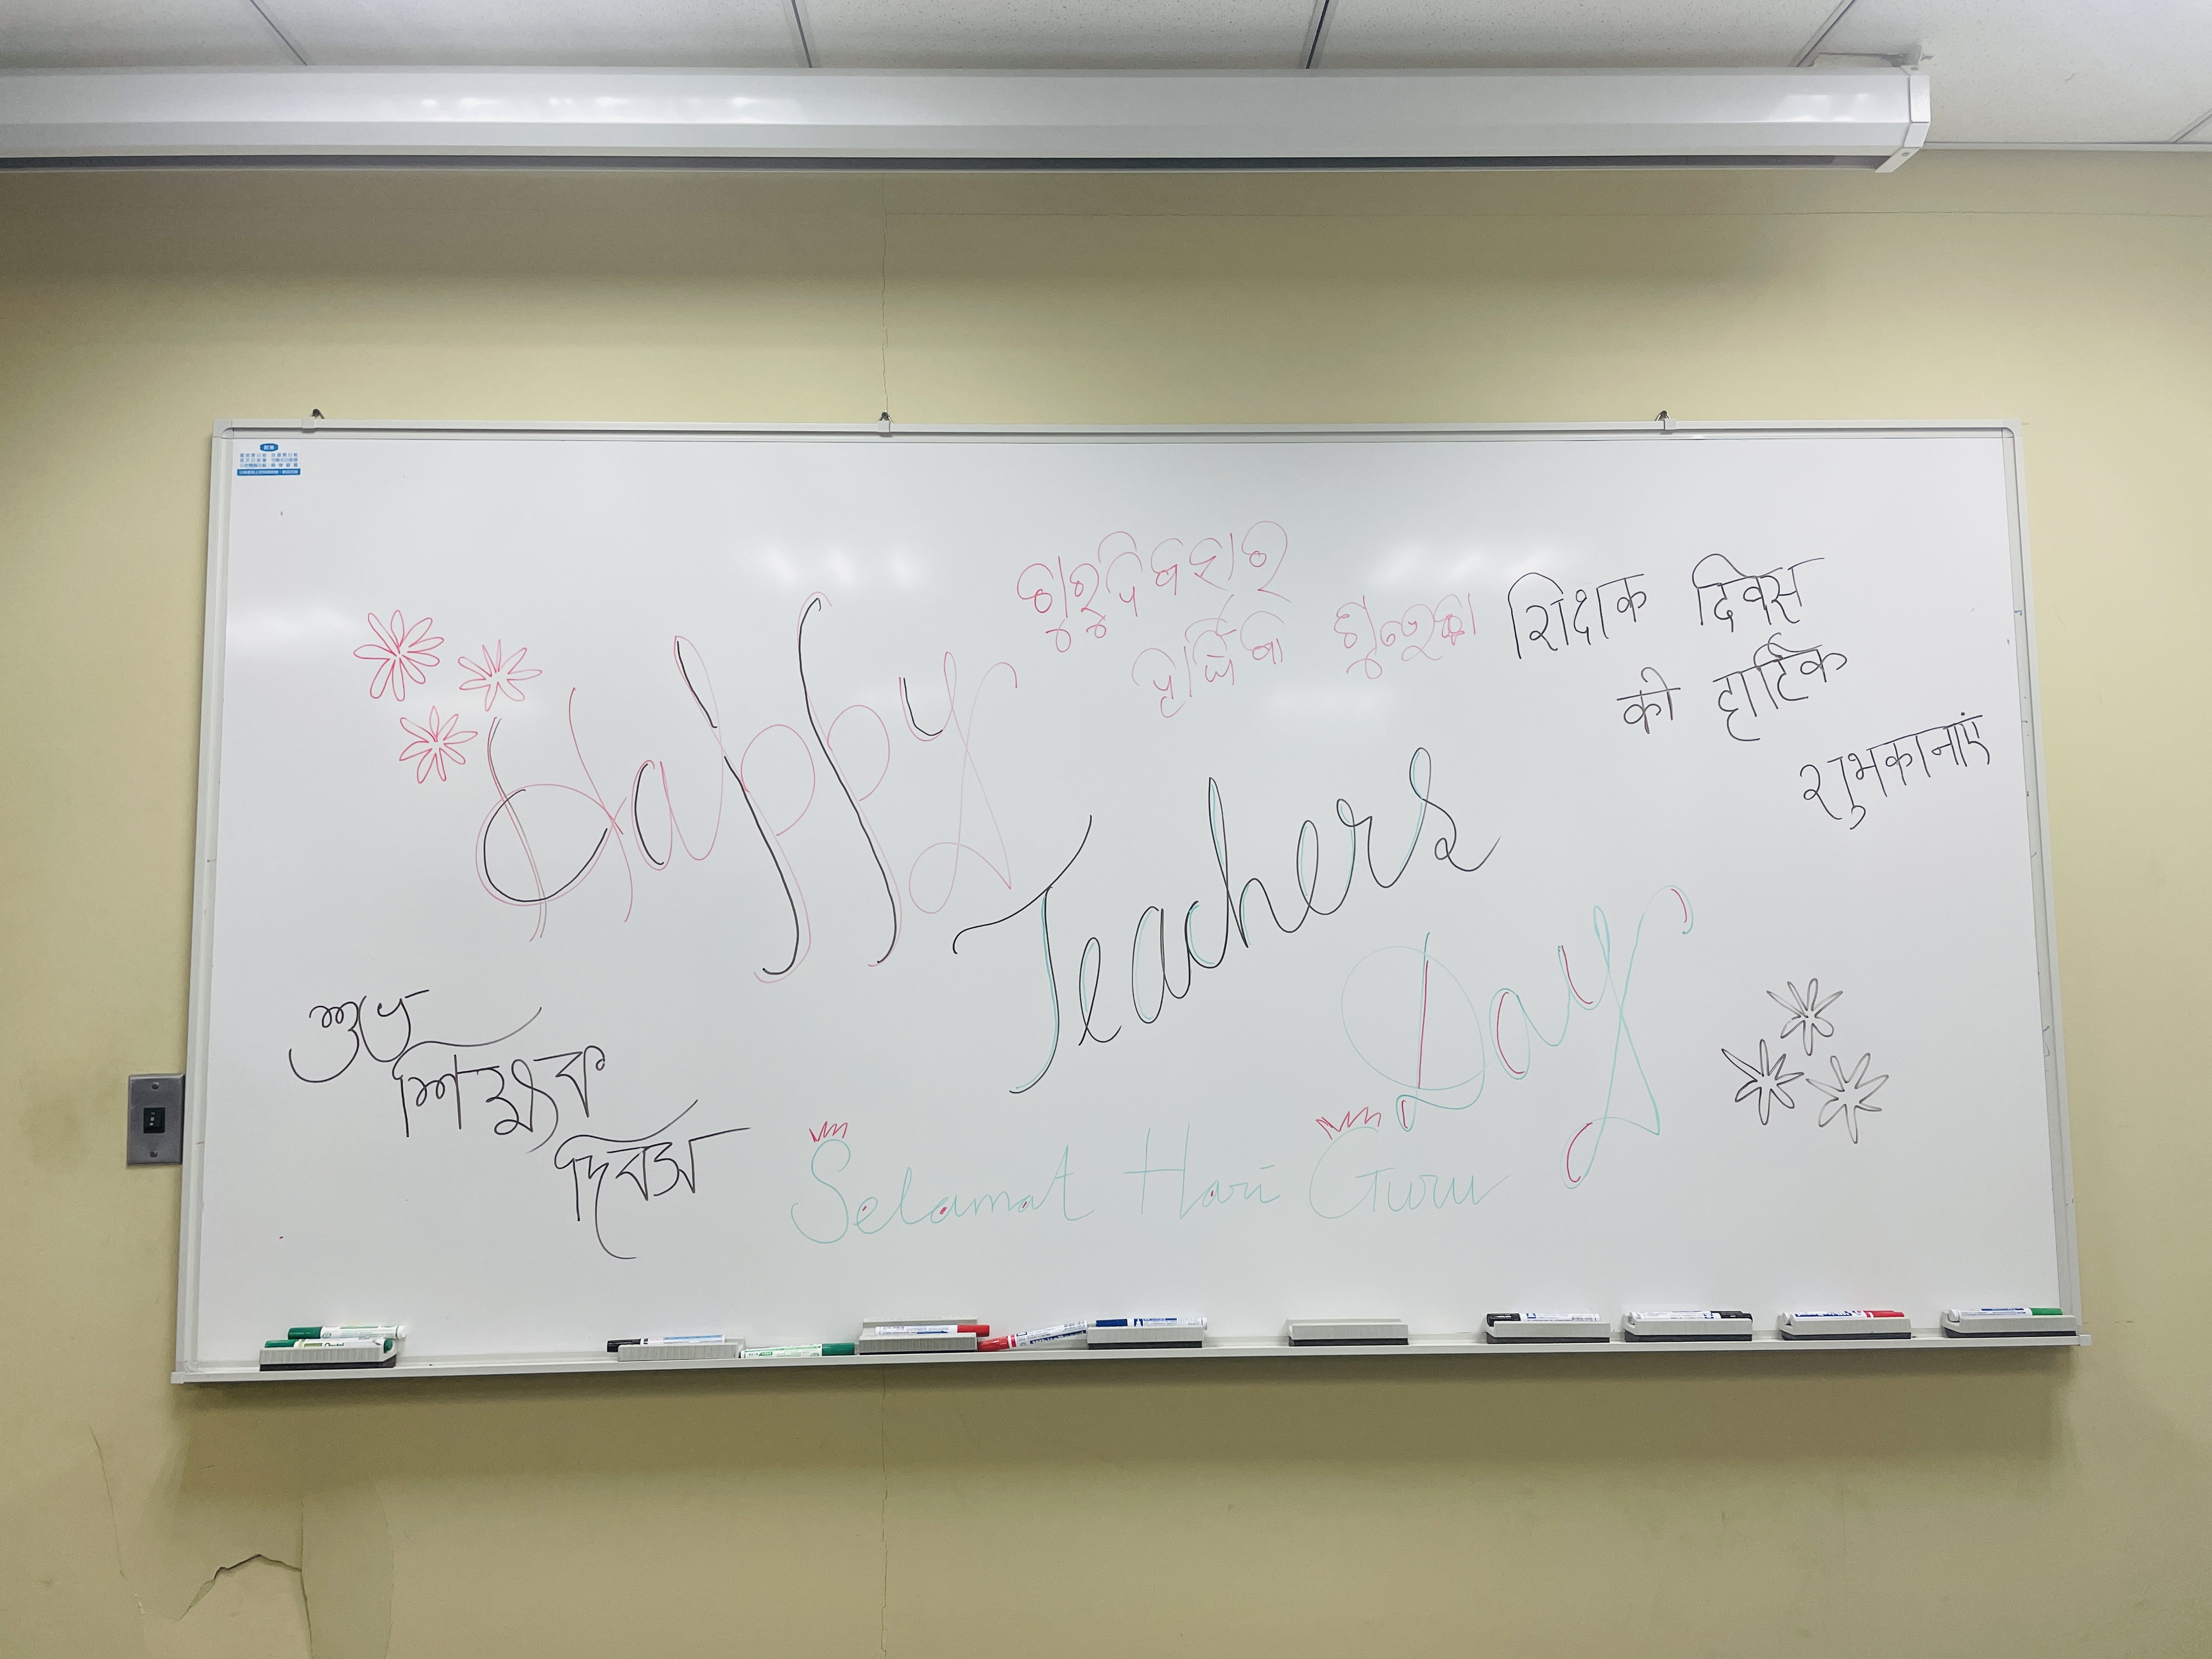 ଗୁରୁଦିବସର
ହାର୍ଦ୍ଦିକ ଶୁଭେଚ୍ଛା
शिक्षक दिवस
की हार्दिक
शुभकानाएं
Happy
Teachers
Day
শুভ
শিক্ষক
দিবস
Selamat Hari Guru